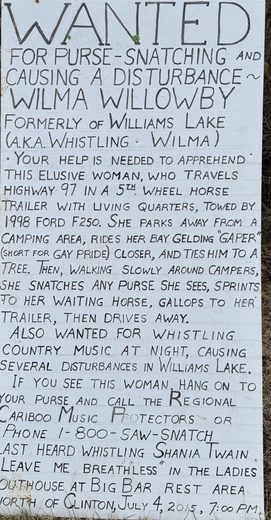 WANTED
FOR PURSE-SNATCHING AND
CAUSING A DISTURBANCE ~
WILMA WILLOWBY
FORMERLY OF WILLIAMS LAKE
(A.K.A. WHISTLING · WILMA)
· YOUR HELP IS NEEDED TO APPREHEND
THIS ELUSIVE WOMAN, WHO TRAVELS
HIGHWAY 97 IN A 5TH WHEEL HORSE
TRAILER WITH LIVING QUARTERS, TOWED BY
1998 FORD F250. SHE PARKS AWAY FROM A
CAMPING AREA, RIDES HER BAY GELDING "GAPER"
(SHORT FOR GAY PRIDE) CLOSER, AND TIES HIM TO A
TREE. THEN, WALKING SLOWLY AROUND CAMPERS,
SHE SNATCHES ANY PURSE SHE SEES, SPRINTS
TO HER WAITING HORSE, GALLOPS TO HER
TRAILER, THEN DRIVES AWAY.
ALSO WANTED FOR WHISTLING
COUNTRY MUSIC AT NIGHT, CAUSING
SEVERAL DISTURBANCES IN WILLIAMS LAKE.
IF YOU SEE THIS WOMAN, HANG ON TO
YOUR PURSE AND CALL THE REGIONAL
CARIBOO MUSIC PROTECTORS OR
PHONE 1-800-SAW-SNATCH
LAST HEARD WHISTLING SHANIA TWAIN
"LEAVE ME BREATHLESS" IN THE LADIES
OUTHOUSE AT BIG BAR REST AREA
NORTH OF CLINTON, JULY 4, 2015, 7:00 PM.